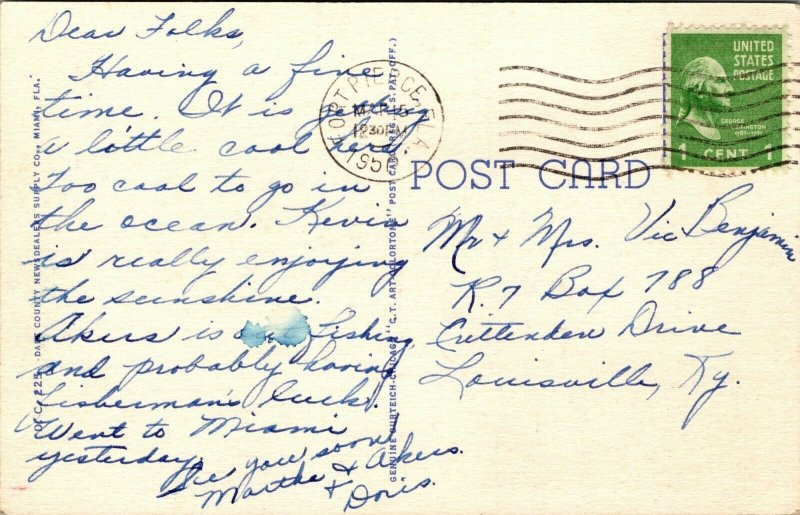 Dear Folks,
Having a fine
time. It is
a little cool here
Too cool to go in
the ocean. Kevin
is really enjoying
the sunshine.
Akers is Fishing
and probably having
fisherman's luck.
Went to Miami
yesterday.
See you soon,
Martha & Akers.
+ Doris.
DADE COUNTY NEWSDEALERS SUPPLY CO., MIAMI, FLA.
GENUINE CURTEICH-CHICAGO "C. T. ART-COLORTONE" POST CARD (REG. U. S. PAT. OFF.)
FORT PIERCE, FLA.
MAR
1230 PM
195
UNITED
STATES
POSTAGE
GEORGE
WASHINGTON
1 CENT 1
POST CARD
Mr + Mrs. Vic Benjamin
R. 7 Box 788
Cuttenden Drive
Louisville, Ky.